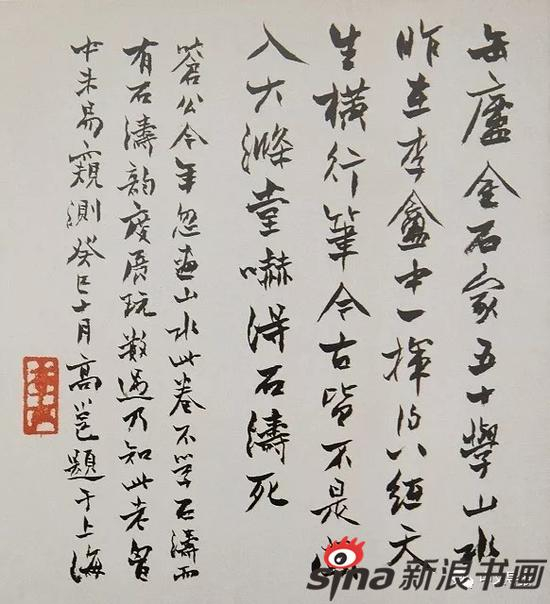 缶廬金石家五十學山水
昨在李盦中一揮得八紙天
生橫行筆今古皆不是
入大滌堂嚇得石濤死
蒼公今年忽画山水此卷不学石濤而
有石濤韵度展玩數過乃知此老胷
中未易窺測癸巳十月高邕題于上海
sina新浪书画